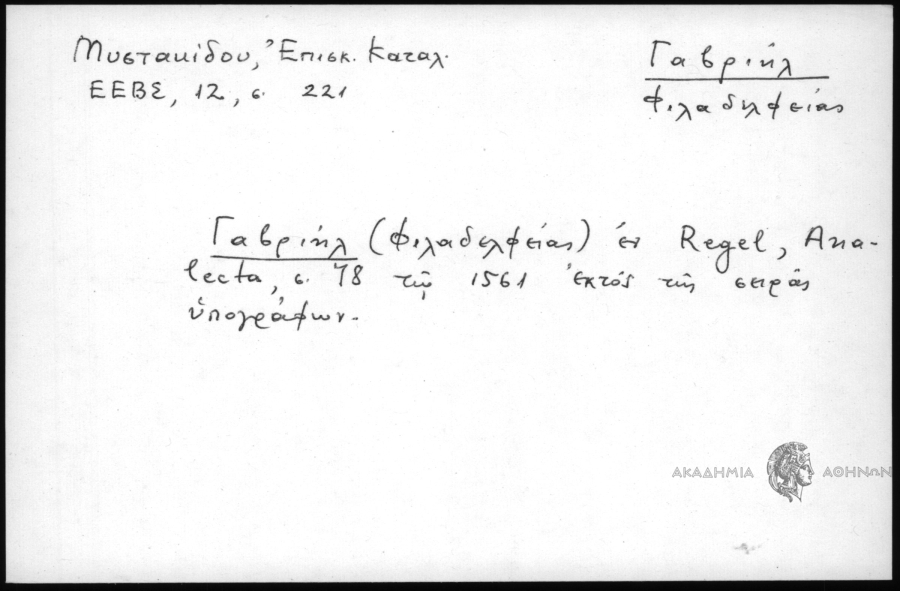 Μυστακίδου, Ἐπισκ. Καταλ.
ΕΕΒΣ, 12, σ. 221
Γαβριήλ
Φιλαδελφείας
Γαβριήλ (Φιλαδελφείας) ἐν Regel, Ana-
lecta, σ. 78 τῷ 1561 ἐκτός τῆς σειρᾶς
ὑπογράφων.
ΑΚΑΔΗΜΙΑ ΑΘΗΝΩΝ